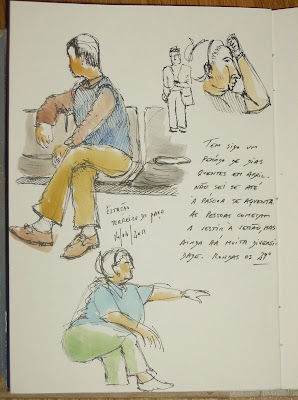 Estação
Terreiro do Paço
16/04/2011
Tem sido um
período de dias
quentes em Abril.
Não sei se até
à Páscoa se aguenta.
As pessoas começam
a vestir à verão, mas
ainda há muita diversi-
dade. Rondas os 27º